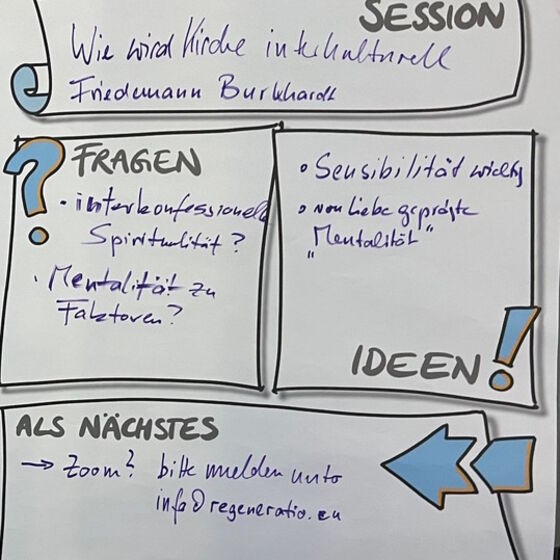 SESSION
Wie wird Kirche interkulturell
Friedemann Burkhardt
FRAGEN
• interkonfessionelle
Spiritualität?
• Mentalität zu
Faktoren?
• Sensibilität wichtig
• von Liebe geprägte
„Mentalität“
IDEEN
ALS NÄCHSTES
→ Zoom? bitte melden unter
info@regeneratio.eu